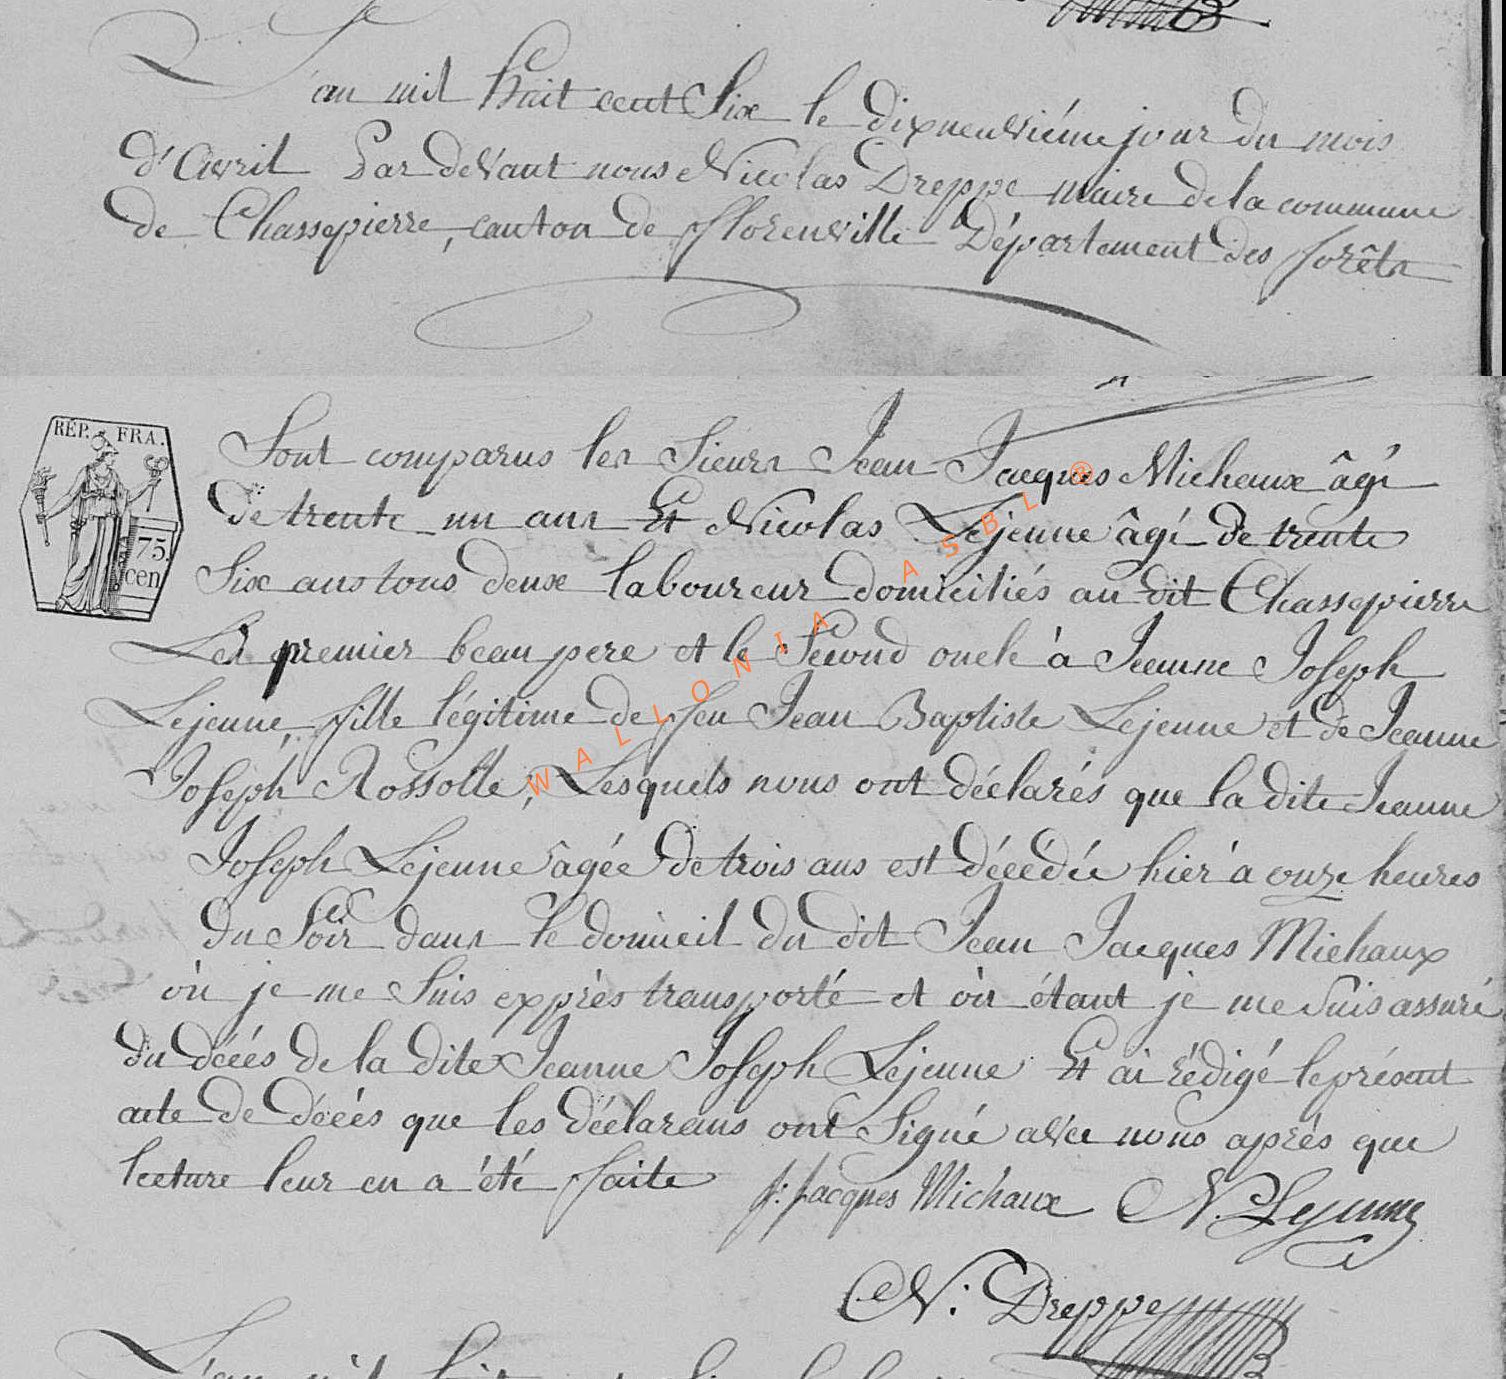 L'an mil huit cent Six le dixneuvième jour du mois
d'Avril Par devant nous Nicolas Dreppe maire de la commune
de Chassepierre, canton de fflorenville Département des forêts
RÉP. FRA.
75.
cen
Sont comparus les Sieurs Jean Jacques Michaux âgé
de trente un ans Et Nicolas Lejeune âgé de trente
Six ans tous deux laboureur domiciliés au dit Chassepierre
Le premier beau pere et le Second oncle à Jeanne Joseph
Lejeune, fille légitime de feu Jean Baptiste Lejeune et de Jeanne
Joseph Rossolle; Lesquels nous ont déclarés que la dite Jeanne
Joseph Lejeune âgée de trois ans est décédée hier à onze heures
du Soir dans le domicil du dit Jean Jacques Michaux
où je me Suis exprès transporté et où étant je me suis assuré
du décés de la dite Jeanne Joseph Lejeune Et ai rédigé le présent
acte de décés que les déclarans ont Signé avec nous après que
lecture leur en a été faite J: Jacques Michaux N. Lejeune
N: Dreppe
WALLONIA ASBL ®